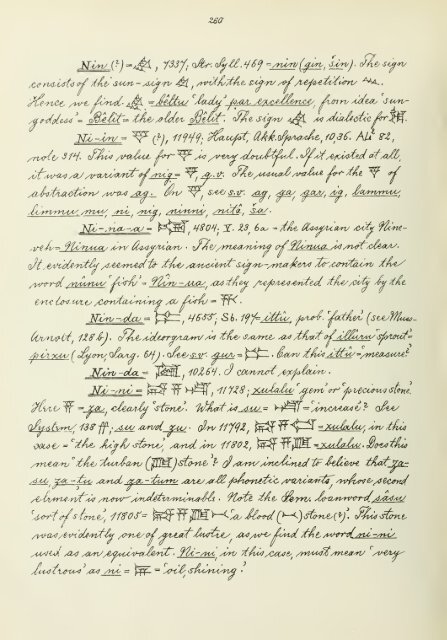 260
Nin (?) = , 7337; Str. Syll. 469 = nin (gin, šin). The sign
consists of the sun-sign , with the sign of repetition .
Hence we find = bêltu 'lady' par excellence, from idea 'sun-
goddess' = Bêlit = the older Bêlit. The sign is dialectic for .
Ni-in = (?), 11949; Haupt, Akk. Sprache, 10, 36. AL² 82,
note 314. This value for is very doubtful. If it existed at all,
it was a variant of nig = , q.v. The usual value for the of
abstraction was ag. On , see s.v. ag, ga, gar, ig, lammu,
limmu, mu, ni, nig, ninni, nitâ, ša.
Ni-na-a = , 4804, V. 23, 6a = the Assyrian city Nine-
veh = Ninua in Assyrian. The meaning of Ninua is not clear.
It evidently seemed to the ancient sign-makers to contain the
word nûnu 'fish' = Nin-ua, as they represented the city by the
enclosure containing a fish = .
Nin-da = , 4655; Sb. 194 = ittû, prob. 'father' (see Muss-
Arnolt, 128 b). The ideogram is the same as that of illuru 'sprout' =
pirxu (Lyon, Sarg. 64). See s.v. gur = . Can this ittû = 'measure'?
Nin-da = , 10264. I cannot explain.
Ni-ni = , 11728; xulalu 'gem' or 'precious stone.'
Here = za, clearly 'stone'. What is su = = 'increase'? See
System, 138 ff.; su and gu. In 11792, = xulalu, in this
case = 'the high stone', and in 11802, = xulalu. Does this
mean 'the turban ( ) stone'? I am inclined to believe that za-
su, za-tu and za-tum are all phonetic variants, whose second
element is now indeterminable. Note the Semi. loanword sâsu
'sort of stone', 11805 = 'a blood ( ) stone (?). This stone
was evidently one of great lustre, as we find the word ni-ni
used as an equivalent. Ni-ni, in this case, must mean 'very
lustrous' as ni = = 'oil, shining.'